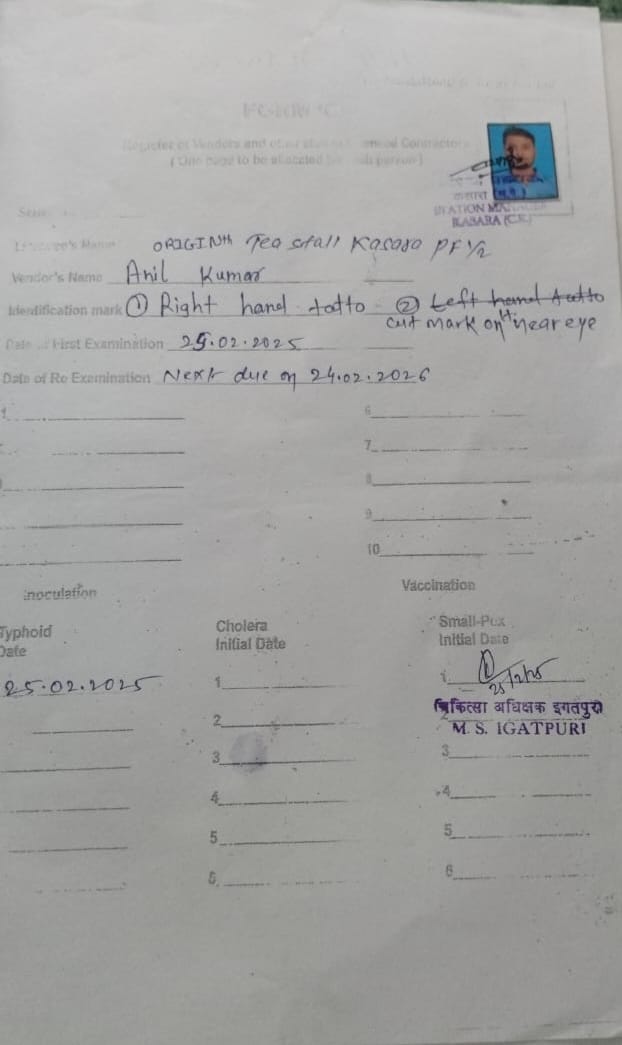 FORM 'C'
Register of Vendors and other staff of Licensed Contractors
(One page to be allocated for each person)
कसारा (म.रे.)
STATION MANAGER
KASARA (C.R.)
Licensee's Name ORIGINTH Tea stall Kasara PF 1/2
Vendor's Name Anil Kumar
Identification mark ① Right hand totto ② Left hand tatto
cut mark on near eye
Date of First Examination 25.02.2025
Date of Re Exemination Next due on 24.02.2026
6
7
8
9
10
Inoculation Vaccination
Typhoid Cholera Small-Pox
Date Initial Date Initial Date
25.02.2025 1 1 25/2/25
चिकित्सा अधिक्षक इगतपुरी
M. S. IGATPURI
2
3 3
4 4
5 5
6 6